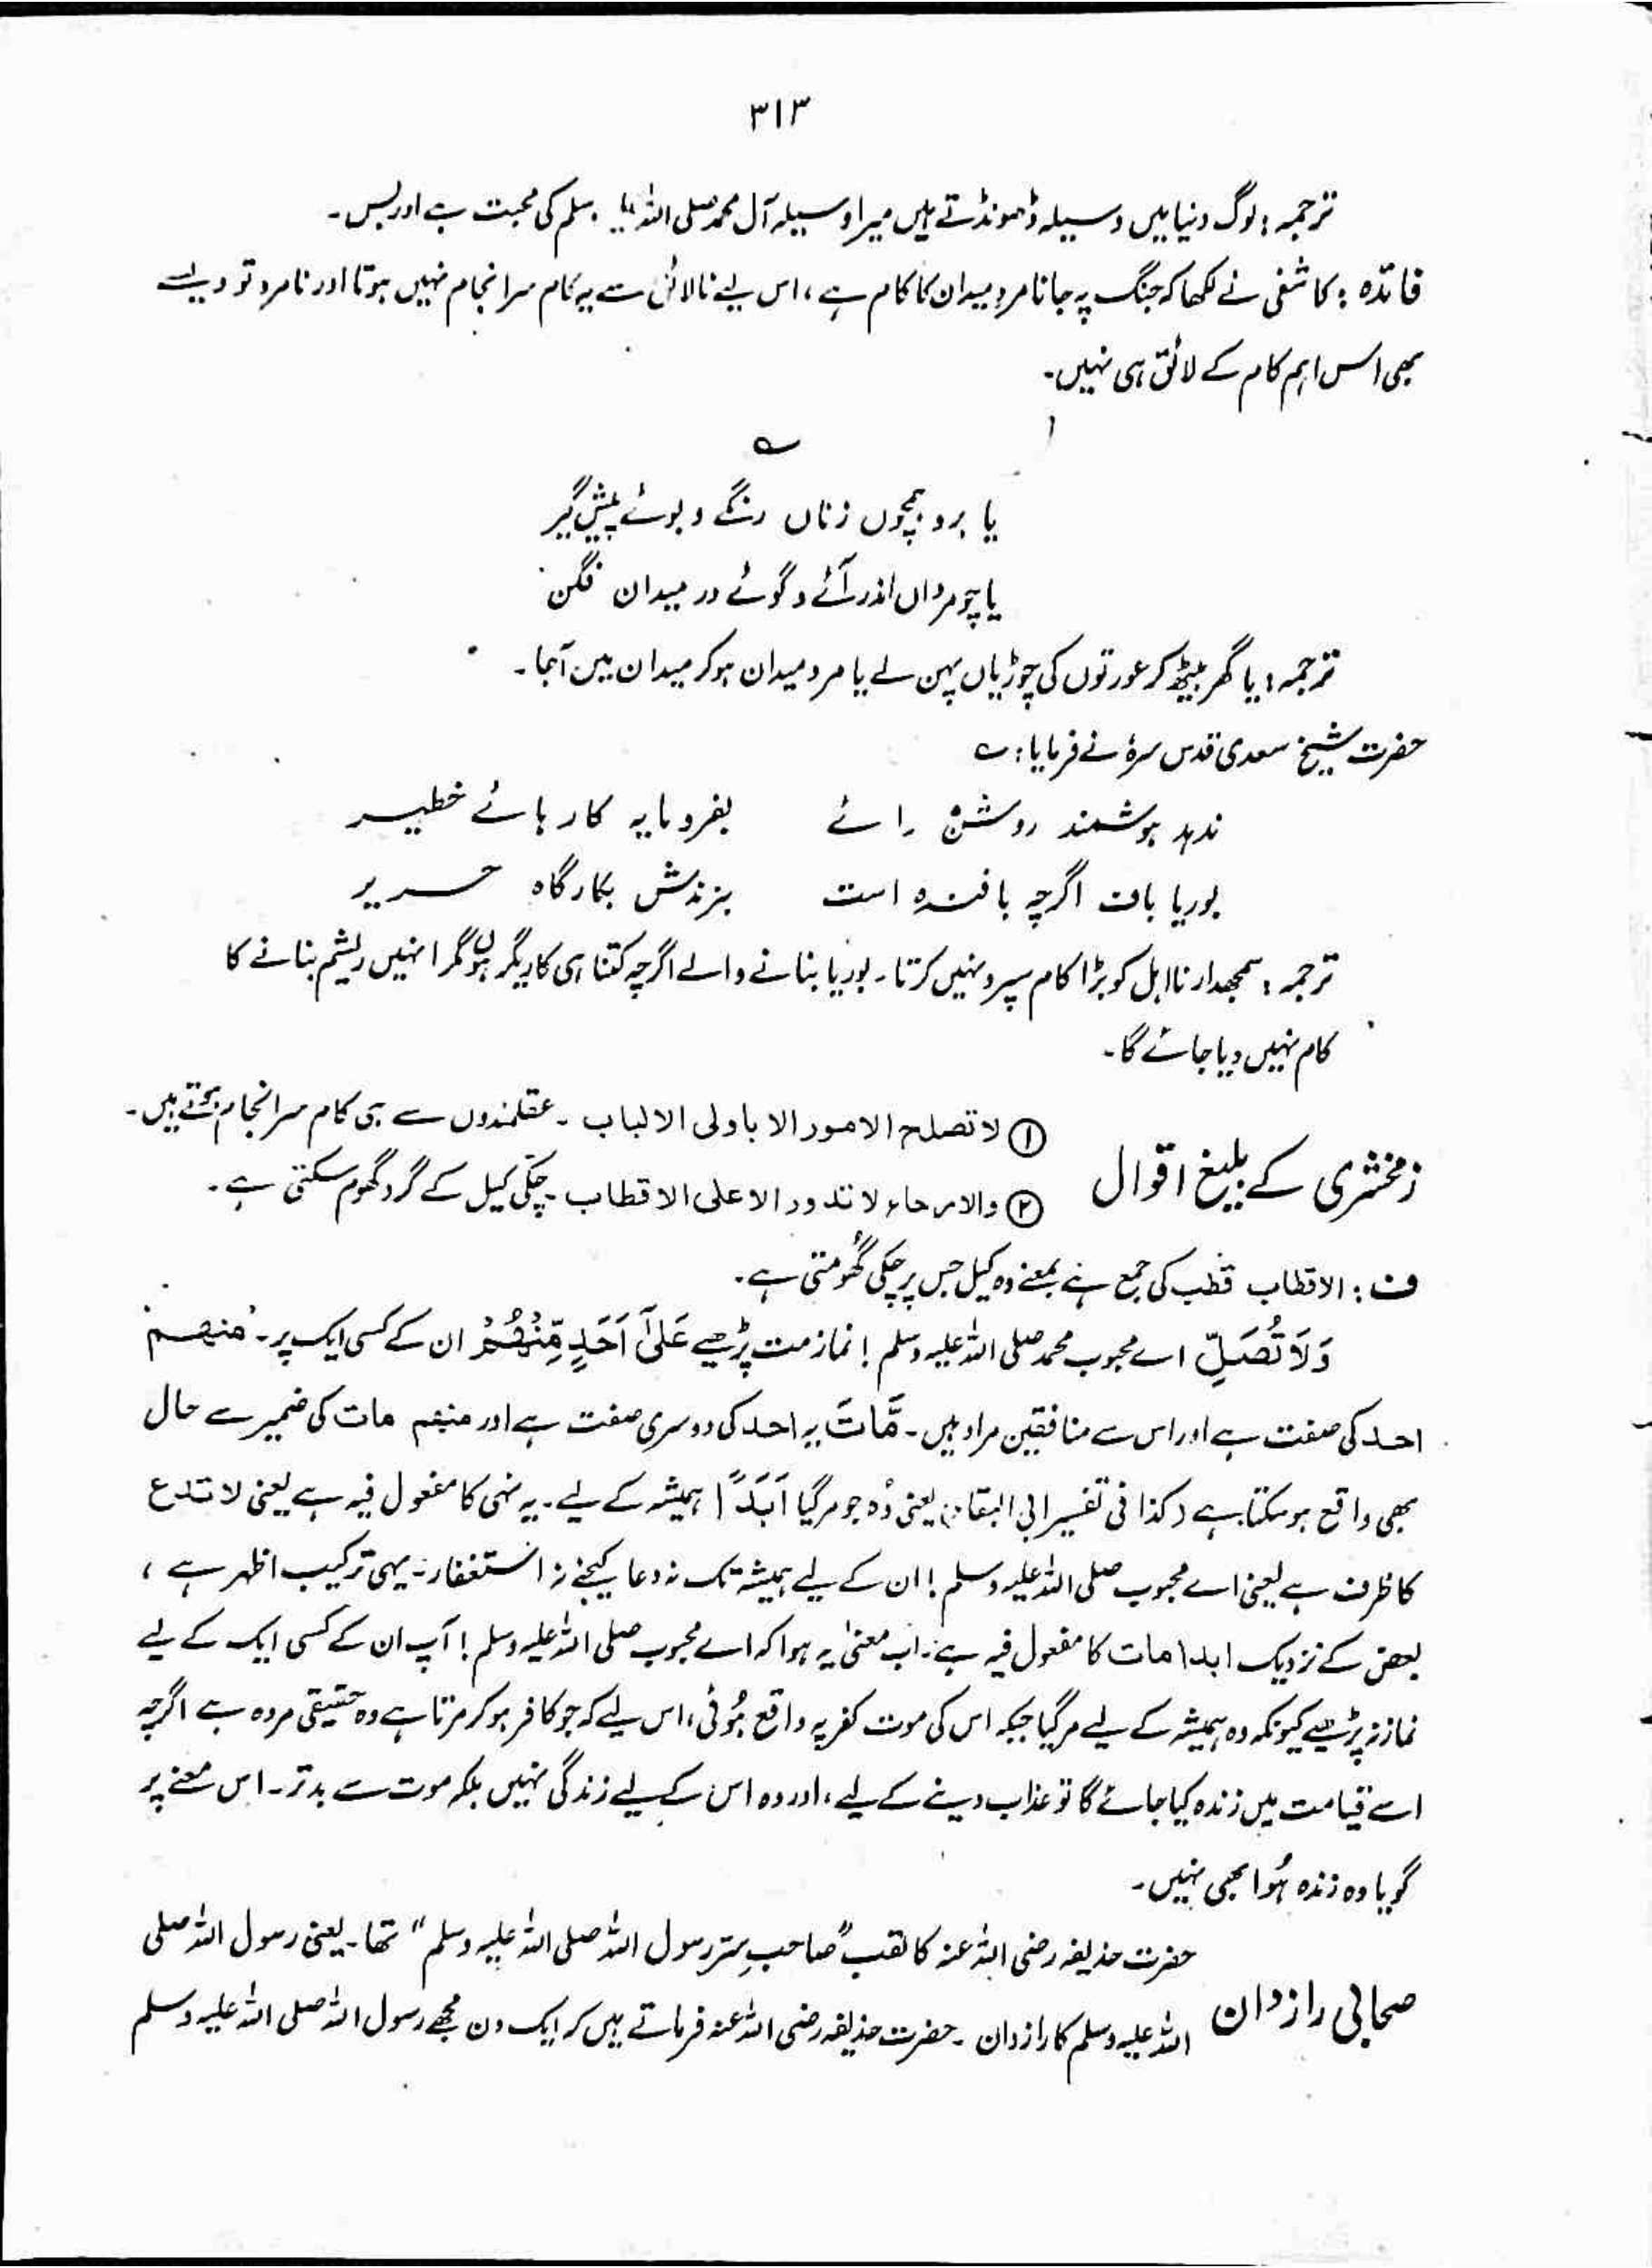 ۳۱۳
ترجمہ : لوگ دنیا میں وسیلہ ڈھونڈتے ہیں میرا وسیلہ آل محمد صلی اللہ وسلم کی محبت ہے اور بس ۔
فائدہ : کاشفی نے لکھا کہ جنگ پہ جانا مردِ میدان کا کام ہے ، اس لیے نالائق سے یہ کام سرانجام نہیں ہوتا اور نامرد تو ویسے
بھی اس اہم کام کے لائق ہی نہیں ۔
؎
یا برو ہمچوں زناں رنگے و بوئے پیش گیر
یا چو مرداں اندر آئے و گوئے در میدان فگن
ترجمہ : یا گھر بیٹھ کر عورتوں کی چوڑیاں پہن لے یا مردِ میدان ہو کر میدان میں آجا ۔
حضرت شیخ سعدی قدس سرہٗ نے فرمایا : ؎
ندہد ہوشمند روشن رائے بفرومایہ کار ہائے خطیر
بوریا باف اگرچہ بافندہ است بزندش بکارگاہ حریر
ترجمہ : سمجھدار نااہل کو بڑا کام سپرد نہیں کرتا ۔ بوریا بنانے والے اگرچہ کتنا ہی کاریگر ہوں مگر انہیں ریشم بنانے کا
کام نہیں دیا جائے گا ۔
زمخشری کے بلیغ اقوال ① لا تصلح الامور الا باولی الالباب ۔ عقلمندوں سے ہی کام سرانجام ہوتے ہیں ۔
② والارحاء لا تدور الا علی الاقطاب ۔ چکّی کیل کے گرد گھوم سکتی ہے ۔
ف : الاقطاب قطب کی جمع ہے بمعنے وہ کیل جس پر چکی گھومتی ہے ۔
وَلَا تُصَلِّ اے محبوب محمد صلی اللہ علیہ وسلم ! نماز مت پڑھیے عَلٰٓی اَحَدٍ مِّنْھُمْ ان کے کسی ایک پر ۔ منھم
احد کی صفت ہے اور اس سے منافقین مراد ہیں ۔ مَّاتَ یہ احد کی دوسری صفت ہے اور منھم مات کی ضمیر سے حال
بھی واقع ہو سکتا ہے (کذا فی تفسیر ابی البقاء) یعنی وُہ جو مر گیا اَبَدًا ہمیشہ کے لیے ۔ یہ نہی کا مفعول فیہ ہے یعنی لا تدع
کا ظرف ہے یعنی اے محبوب صلی اللہ علیہ وسلم ! ان کے لیے ہمیشہ تک نہ دعا کیجئے نہ استغفار ۔ یہی ترکیب اظہر ہے ،
بعض کے نزدیک ابدا مات کا مفعول فیہ ہے ۔ اب معنیٰ یہ ہوا کہ اے محبوب صلی اللہ علیہ وسلم ! آپ ان کے کسی ایک کے لیے
نماز نہ پڑھیے کیونکہ وہ ہمیشہ کے لیے مر گیا جبکہ اس کی موت کفر پہ واقع ہُوئی ، اس لیے کہ جو کافر ہو کر مرتا ہے وہ حقیقی مردہ ہے اگرچہ
اسے قیامت میں زندہ کیا جائے گا تو عذاب دینے کے لیے ، اور وہ اس کے لیے زندگی نہیں بلکہ موت سے بدتر ۔ اس معنے پر
گویا وہ زندہ ہُوا بھی نہیں ۔
صحابی رازدان حضرت حذیفہ رضی اللہ عنہ کا لقب "صاحبِ سِرّ رسول اللہ صلی اللہ علیہ وسلم" تھا ۔ یعنی رسول اللہ صلی
اللہ علیہ وسلم کا رازدان ۔ حضرت حذیفہ رضی اللہ عنہ فرماتے ہیں کہ ایک دن مجھے رسول اللہ صلی اللہ علیہ وسلم